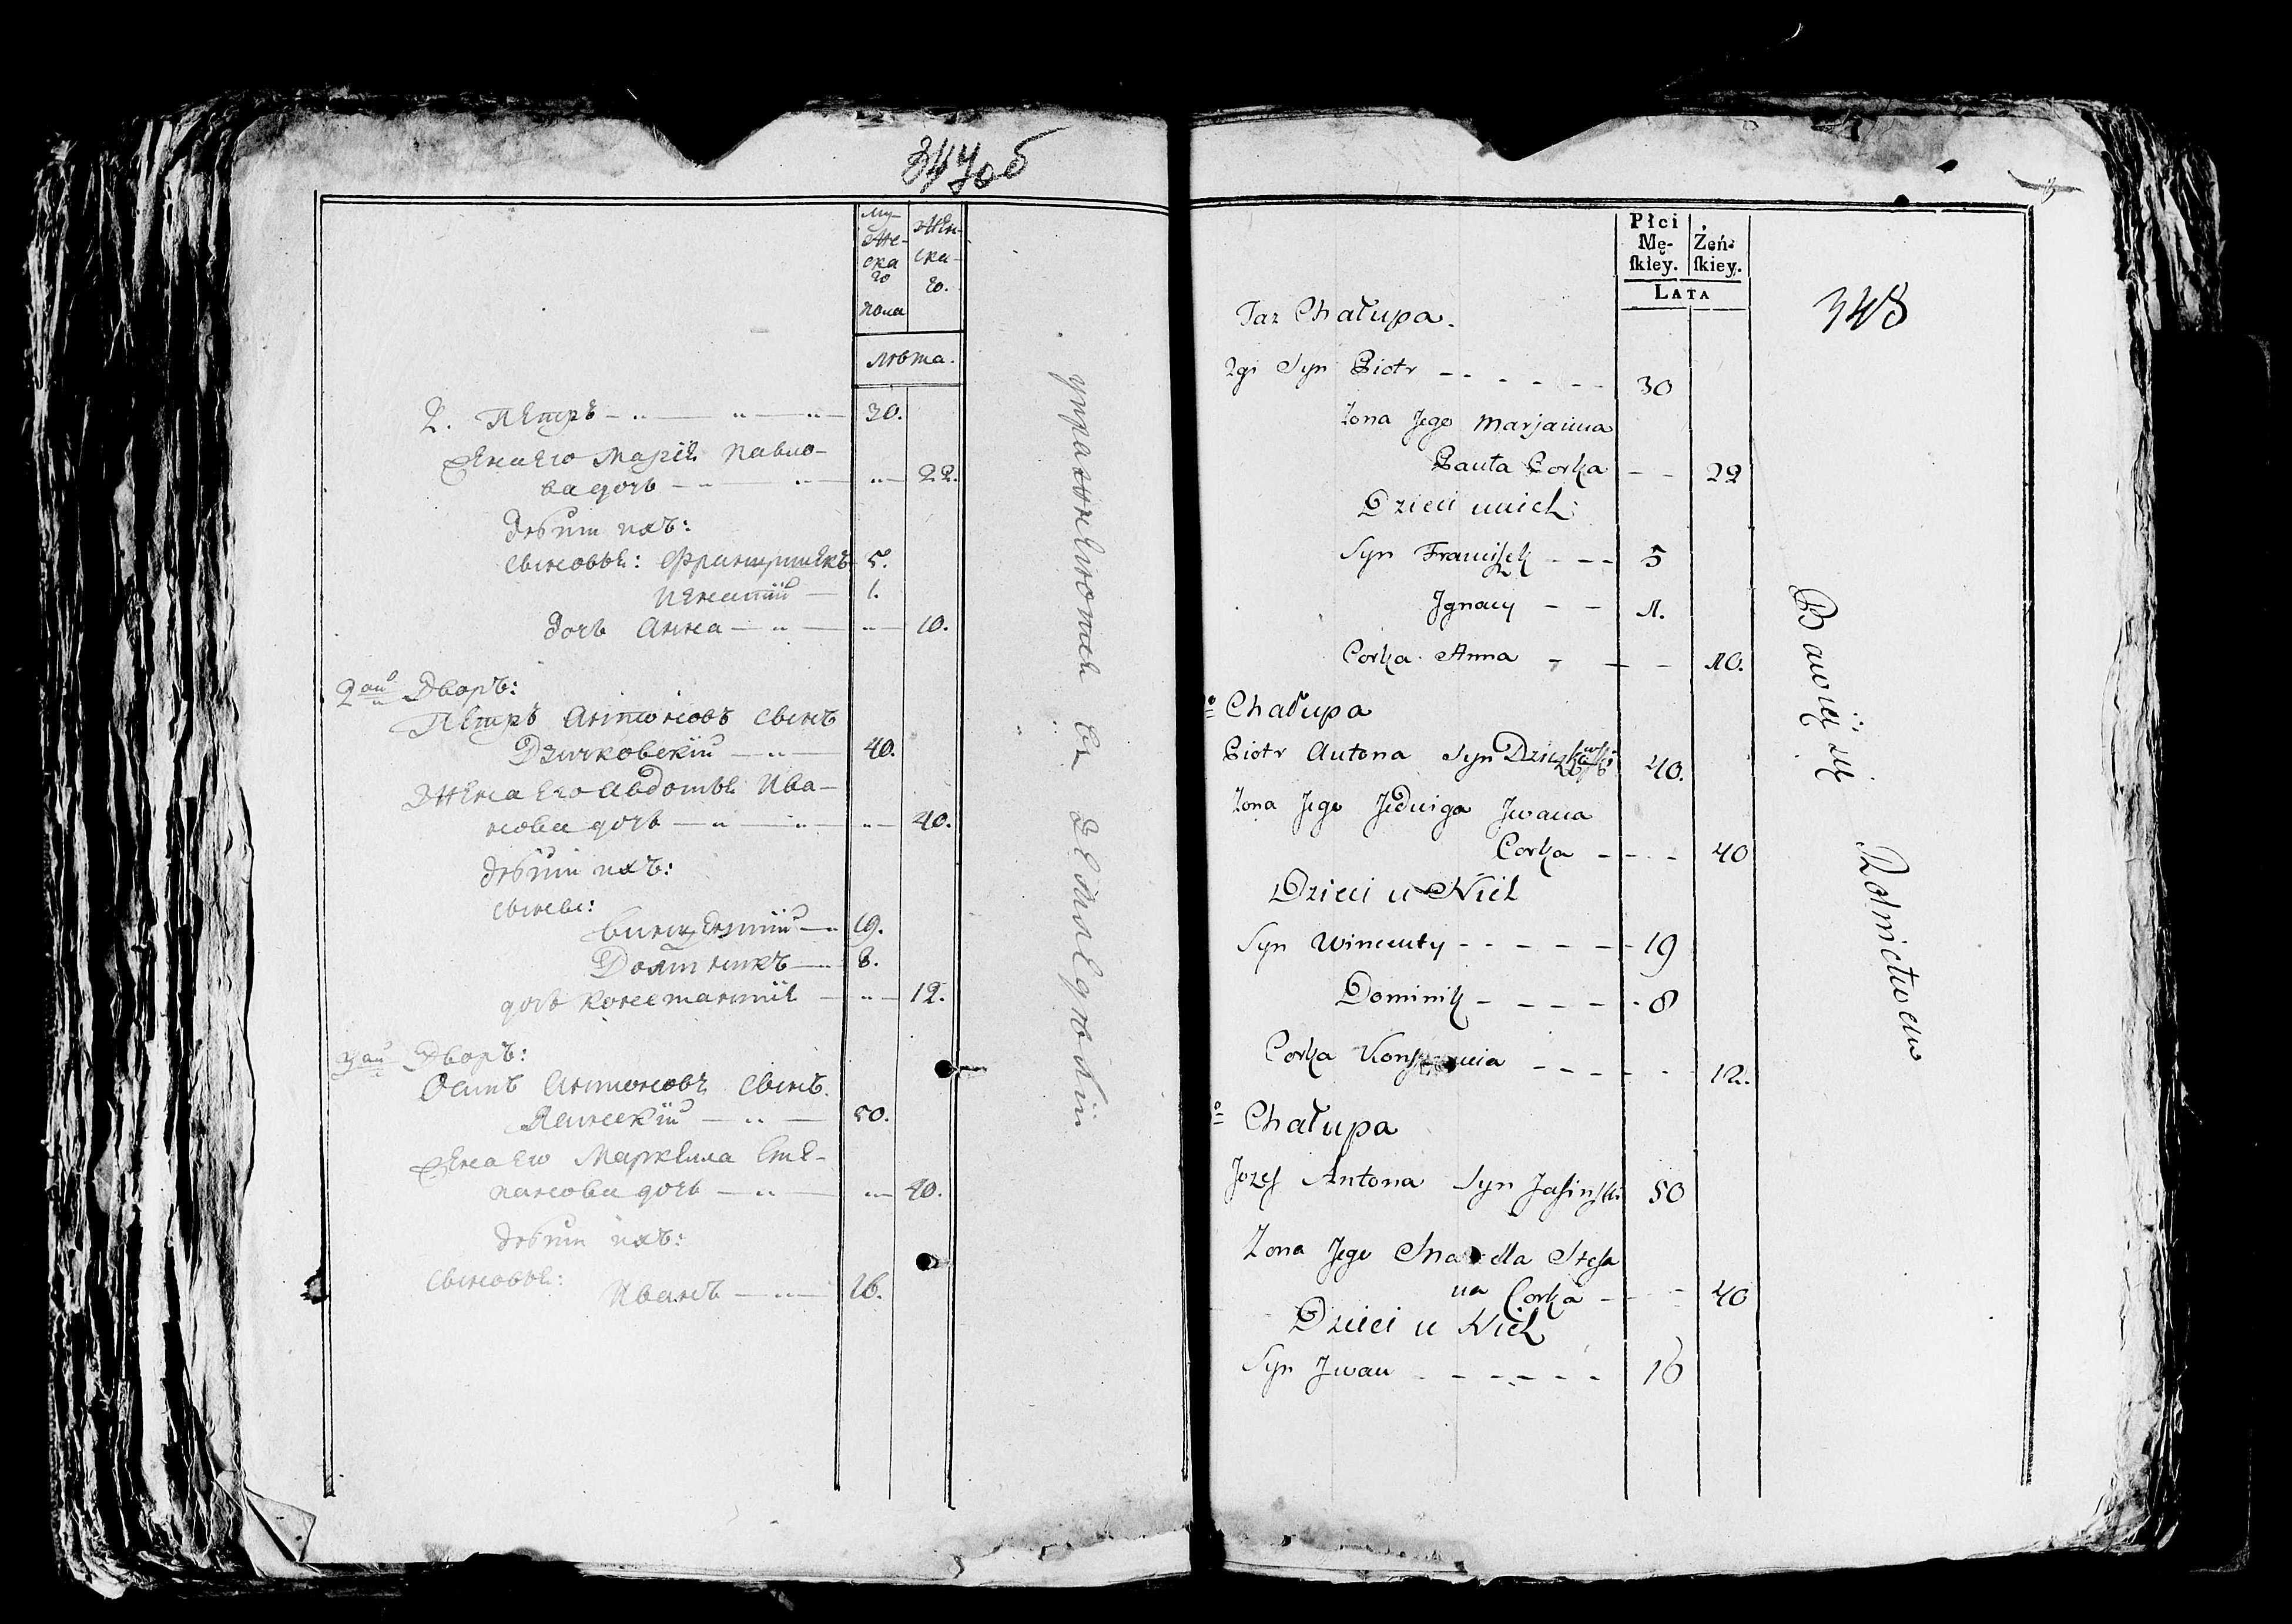 347об
Му-
же-
ска
го
пола
Жен-
ска-
го.
лѣта.
2. Петръ 30.
Жена Его Марія Павло-
ва дочь 22.
дѣти ихъ:
сыновья: Францишекъ 5.
Игнатій 1.
дочь Анна 10.
2ой Дворъ:
Петръ Антоновъ сынъ
Дзичковскій 40.
Жена Его Авдотья Ива-
нова дочь 40.
дѣти ихъ:
сыны:
Винцентій 19.
Доминикъ 8.
дочь Констанція 12.
3ой Дворъ:
Осипъ Антоновъ сынъ
Ясинскій 50.
Жена Его Маркелла Сте-
панова дочь 40.
дѣти ихъ:
сыновья:
Иванъ 16.
упражняются въ Земледѣліи
Płci
Mę-
skiey.
Żeń-
skiey.
LATA
348
Taz Chałupa.
2gi Syn Piotr 30
Zona Jego Marjanna
Pawła Corka 22
Dzieci unich:
Syn Franciszek 5
Jgnacy 1.
Corka Anna 10.
Chałupa
Piotr Antona Syn Dziczkowski 40.
Zona Jego Jedwiga Jwana
Corka 40
Dzieci u Nich
Syn Wincenty 19
Dominik 8
Corka Konstancia 12.
Chałupa
Jozef Antona Syn Jasinski 50
Zona Jego Marcella Stefa
na Corka 40
Dzieci u Nich
Syn Jwan 16
Bawią się Rolnictwem